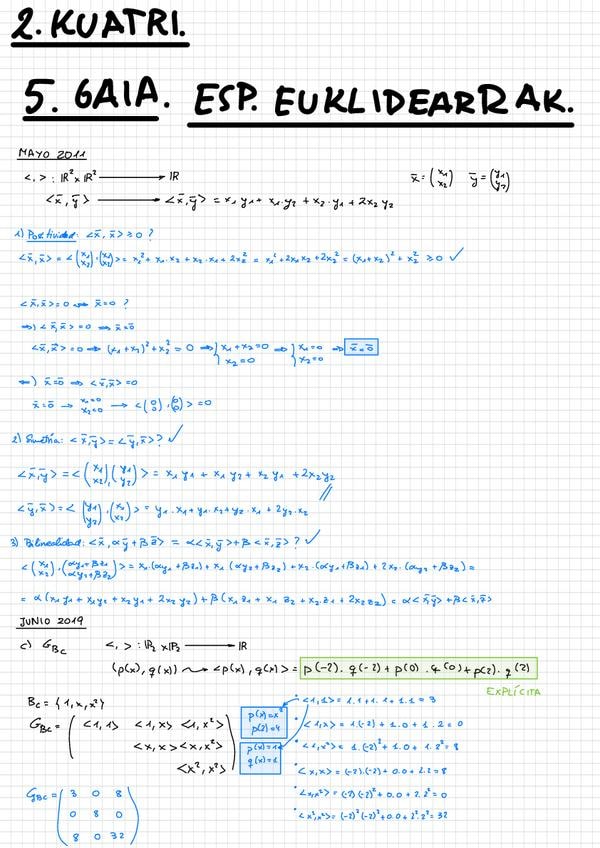 2. KUATRI.
5. GAIA. ESP. EUKLIDEARRAK.
MAYO 2011
< , > : ℝ² × ℝ² ⟶ ℝ    x̄ = (x₁ x₂)  ȳ = (y₁ y₂)
<x̄, ȳ> ⟶ <x̄, ȳ> = x₁y₁ + x₁·y₂ + x₂·y₁ + 2x₂y₂
1) Positividad: <x̄, x̄> ≥ 0 ?
<x̄, x̄> = <(x₁ x₂), (x₁ x₂)> = x₁² + x₁·x₂ + x₂·x₁ + 2x₂² = x₁² + 2x₁x₂ + 2x₂² = (x₁+x₂)² + x₂² ≥ 0 ✓
<x̄, x̄> = 0 ⟺ x̄ = 0 ?
⟹) <x̄, x̄> = 0 ⟹ x̄ = 0̄
<x̄, x̄> = 0 ⟹ (x₁+x₂)² + x₂² = 0 ⟹ { x₁+x₂ = 0  x₂ = 0 ⟹ { x₁ = 0  x₂ = 0 ⟹ x̄ = 0̄
⟸) x̄ = 0̄ ⟹ <x̄, x̄> = 0
x̄ = 0̄ → x₁=0 x₂=0 → <(0 0), (0 0)> = 0
2) Simetría: <x̄, ȳ> = <ȳ, x̄> ? ✓
<x̄, ȳ> = <(x₁ x₂), (y₁ y₂)> = x₁y₁ + x₁y₂ + x₂y₁ + 2x₂y₂
<ȳ, x̄> = <(y₁ y₂), (x₁ x₂)> = y₁·x₁ + y₁·x₂ + y₂·x₁ + 2y₂·x₂
3) Bilinealidad: <x̄, αȳ + βz̄> = α<x̄, ȳ> + β<x̄, z̄> ? ✓
<(x₁ x₂), (αy₁+βz₁ αy₂+βz₂)> = x₁·(αy₁+βz₁) + x₁(αy₂+βz₂) + x₂·(αy₁+βz₁) + 2x₂·(αy₂+βz₂) =
= α(x₁y₁ + x₁y₂ + x₂y₁ + 2x₂y₂) + β(x₁z₁ + x₁z₂ + x₂z₁ + 2x₂z₂) = α<x̄, ȳ> + β<x̄, z̄>
JUNIO 2019
c) G_Bc   < , > : ℙ₂ × ℙ₂ ⟶ ℝ
(p(x), q(x)) ⟿ <p(x), q(x)> = p(-2)·q(-2) + p(0)·q(0) + p(2)·q(2)
EXPLÍCITA
Bc = {1, x, x²}
G_Bc = ( <1,1> <1,x> <1,x²>
<x,x> <x,x²>
<x²,x²> )
p(x) = x²
p(2) = 4
p(x) = 1
q(x) = 1
• <1,1> = 1·1 + 1·1 + 1·1 = 3
• <1,x> = 1·(-2) + 1·0 + 1·2 = 0
• <1,x²> = 1·(-2)² + 1·0 + 1·2² = 8
• <x,x> = (-2)·(-2) + 0·0 + 2·2 = 8
• <x,x²> = (-2)(-2)² + 0·0 + 2·2² = 0
• <x²,x²> = (-2)²(-2)² + 0·0 + 2²·2² = 32
G_Bc = ( 3 0 8
0 8 0
8 0 32 )